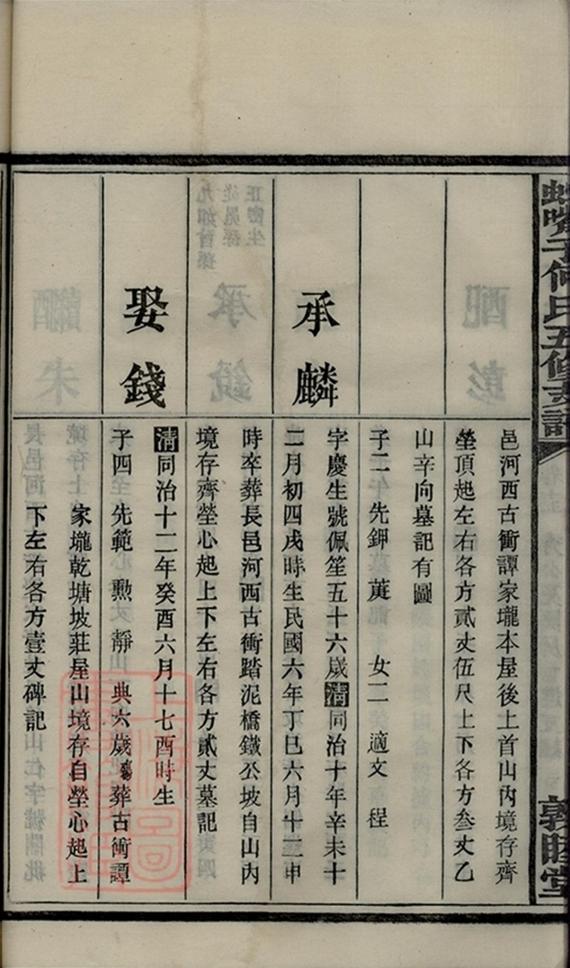 何氏五修支譜
敦睦堂
邑河西古衝譚家壠本屋後上首山內境存齊
塋頂起左右各方貳丈伍尺上下各方叁丈乙
山辛向墓記有圖
子二 先鉀 蓂 女二 適文 程
承麟
字慶生號佩笙五十六歲清同治十年辛未十
二月初四戌時生民國六年丁巳六月十二申
時卒葬長邑河西古衝踏泥橋鐵公坡自山內
境存齊塋心起上下左右各方貳丈墓記
娶錢
清同治十二年癸酉六月十七酉時生
子四 先範 勲 靜 典六歲殤葬古衝譚
家壠乾塘坡莊屋山境存自塋心起上
下左右各方壹丈碑記